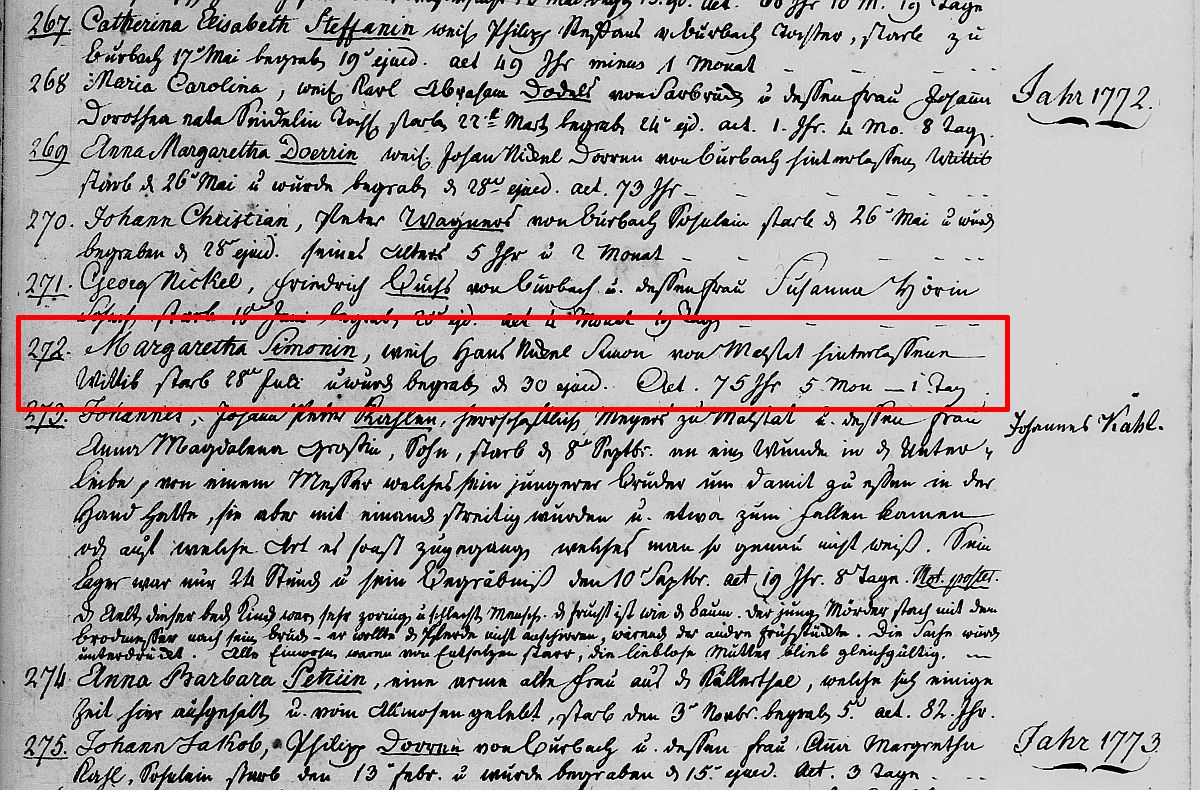 267. Catherina Elisabeth Steffanin weil. Philipp Steffans v. Burbach Tochter, starb zu
Burbach 17 Mai begrab 19 ejusd. aet 49 Jhr minus 1 Monat
268 Maria Carolina, weil. Karl Abraham Dodels von Sarbrück u dessen Frau Johann
Dorothea nata Seidelin Tocht starb 22t Mart begrab 24 ejd. aet. 1. Jhr. 4 Mo. 8 Tag.
269 Anna Margaretha Doerrin weil. Johan Nickel Dorren von Burbach hinterlassen Wittib
starb d 26 Mai u wurde begrab d 28 ejusd. aet. 73 Jhr
270. Johann Christian, Peter Wagners von Burbach Söhnlein starb d 26 Mai u wurd
begraben d 28 ejusd. seines Alters 5 Jhr u 2 Monat
271. Georg Nickel, Friedrich Buchs von Burbach u. dessen Frau Susanna Hörin
Sohn, starb 18 Juni begrab 20 ejd. aet 4 Monat 19 Tag
272. Margaretha Simonin, weil Hans Nickel Simon von Malstat hinterlassene
Wittib starb 28 Juli u wurd begrab d 30 ejusd. Aet. 75 Jhr 5 Mon – 1 Tag
273. Johannes, Johann Peter Kahlen, herrschaftlich Meyers zu Malstat u. dessen Frau
Anna Magdalena Grossin, Sohn, starb d 8 Septbr. an ein Wunde in d Unter-
leibe, von einem Messer welches sein jungerer Bruder um damit zu essen in der
Hand hatte, sie aber mit einand streitig wurden u. etwa zum fallen kamen
od auf welche Art es sonst zugegang, welches man so genau nicht weiß. Sein
Lager war nur 24 Stund u sein Begräbniß den 10 Septbr. aet 19 Jhr. 8 Tage. Not. poster.
d Aelt. dieser beid Kind war sehr zornig u schlecht Mensch. d frucht ist wie d Baum. Der jung Mörder stach mit dem
Brodmesser nach sein Brud – er wollte d Pferde nicht anschirren, wärend der andre frühstückte. Die Sache wurd
unterdrückt. Alle Einwohn. waren von Entsetzen starr, die lieblose Mutter blieb gleichgültig.
274 Anna Barbara Petriin, eine arme alte Frau aus d Köllerthal, welche sich einige
Zeit hier aufgehalt u. vom Almosen gelebt, starb den 3 Novbr. begrab 5. aet. 82. Jhr.
275. Johann Jakob, Philipp Dorren von Burbach u. dessen Frau Anna Margretha
Kahl, Söhnlein starb den 13 Febr. u wurde begraben d 15 ejusd. Aet. 3 Tage
Jahr 1772.
Johannes Kahl.
Jahr 1773.